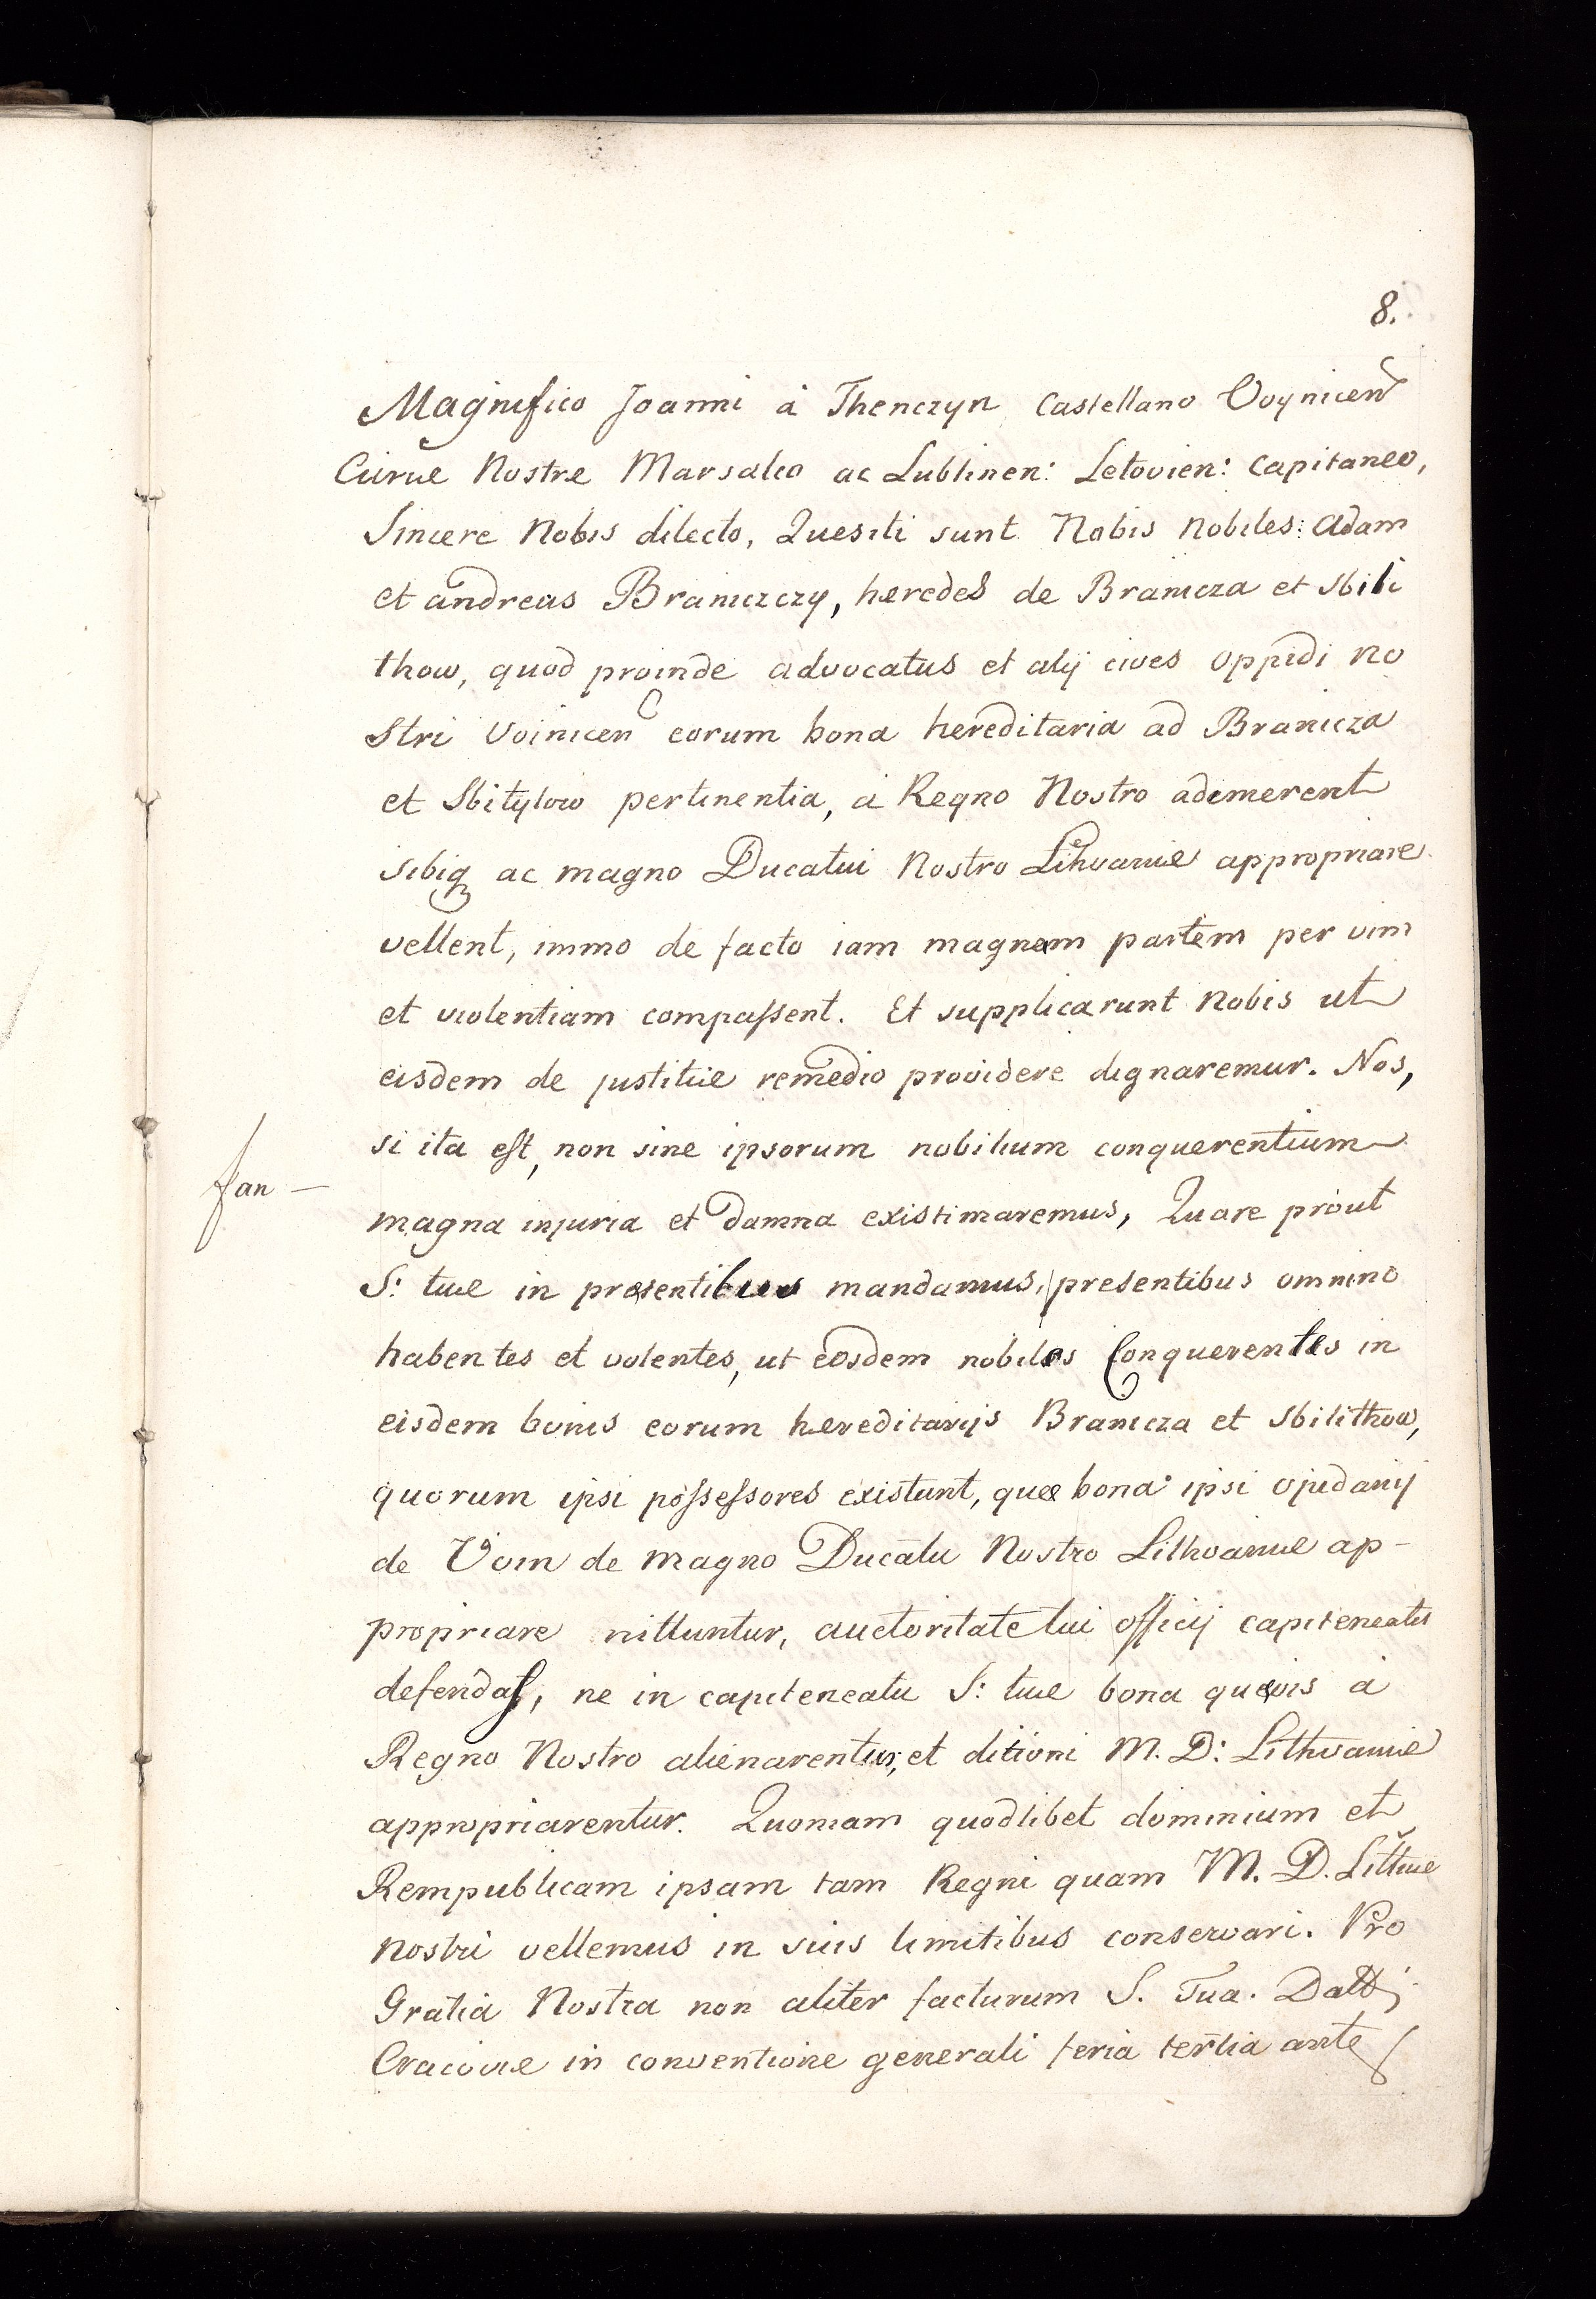 8.
Magnifico Joanni à Thenczyn Castellano Voynicen
Curiæ Nostræ Marsalco ac Lublinen: Letovien: Capitaneo,
Sincere Nobis dilecto, Quesiti sunt Nobis Nobiles: Adam
et Andreas Braniczczy, heredes de Branicza et Sbili
thow, quod proinde advocatus et alij cives Oppidi no
stri Voinicen eorum bona hereditaria ad Branicza
et Sbitylow pertinentia, à Regno Nostro adimerent
sibiq ac magno Ducatui Nostro Lihvaniæ appropriare
vellent, immo de facto iam magnam partem per vim
et violentiam compassent. Et supplicarunt Nobis ut
eisdem de justitiæ remedio providere dignaremur. Nos,
si ita est, non sine ipsorum nobilium conquerentium
fan —
magna injuria et damna existimaremus, Quare prout
S: tuæ in presentibus mandamus, presentibus omnino
habentes et volentes, ut eosdem nobiles Conquerentes in
eisdem bonis eorum hæreditarijs Branicza et Sbilithow,
quorum ipsi possessores existunt, quæ bona ipsi opidanij
de Voin de magno Ducatu Nostro Lithvaniæ ap-
propriare nittuntur, auctoritate tui officij capiteneatus
defendas, ne in capiteneatu S: tuæ bona quævis à
Regno Nostro alienarentur, et ditioni M. D: Lithvaniæ
appropriarentur. Quoniam quodlibet dominium et
Rempublicam ipsam tam Regni quam M. D. Littuæ
nostri vellemus in suis limitibus conservari. Pro
Gratia Nostra non aliter facturum S. Tua. Datt
Cracoviæ in conventione generali feria tertia ante